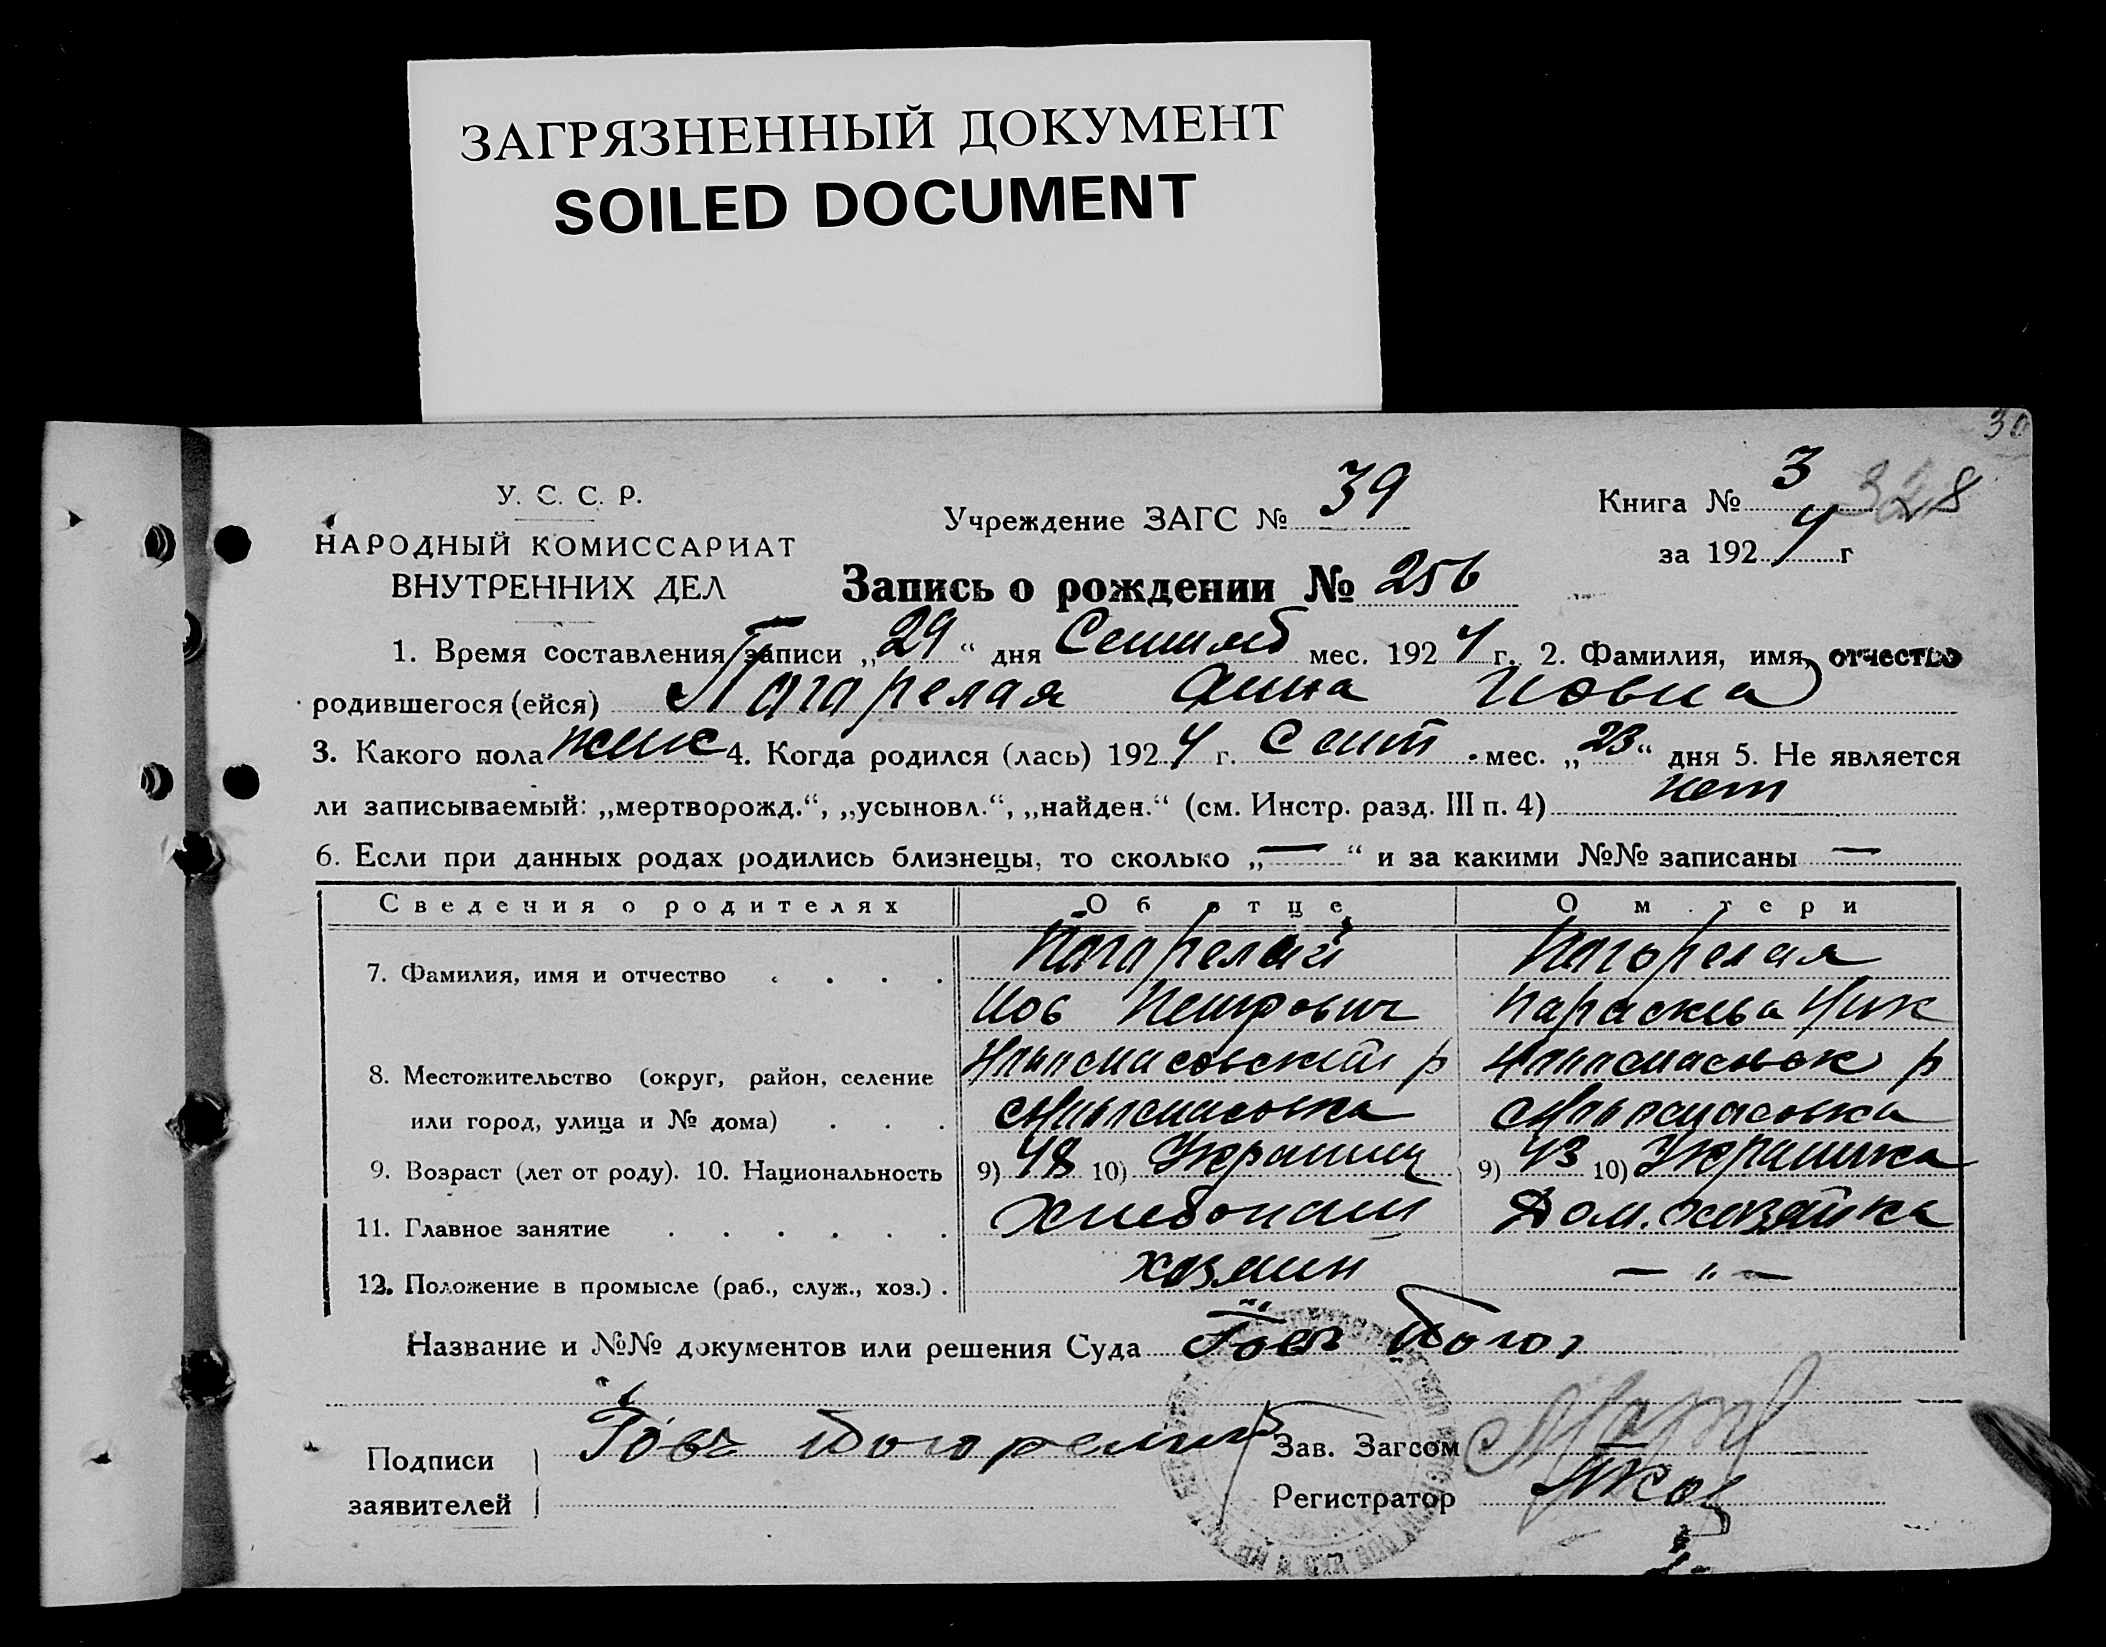 ЗАГРЯЗНЕННЫЙ ДОКУМЕНТ
SOILED DOCUMENT
30
У. С. С. Р.
НАРОДНЫЙ КОМИССАРИАТ
ВНУТРЕННИХ ДЕЛ
Учреждение ЗАГС № 39
Книга № 3 328
за 1924 г
Запись о рождении № 256
1. Время составления записи „29“ дня Сентяб мес. 1924 г. 2. Фамилия, имя, отчество
родившегося (ейся) Пагарелая Анна Иовна
3. Какого пола женс 4. Когда родился (лась) 1924 г. Сент. мес. „23“ дня 5. Не является
ли записываемый: „мертворожд.“, „усыновл.“, „найден.“ (см. Инстр. разд. III п. 4) нет
6. Если при данных родах родились близнецы, то сколько „—“ и за какими №№ записаны —
Сведения о родителях Об отце О м тери
7. Фамилия, имя и отчество . . . . Пагарелай Погорелая
Иов Петрович Параскева Ник
8. Местожительство (округ, район, селение р р
или город, улица и № дома) . . .
9. Возраст (лет от роду). 10. Национальность 9) 48 10) Украинец 9) 43 10) Украинка
11. Главное занятие . . . . . . Хлебопаш Дом. хозяйка
12. Положение в промысле (раб., служ., хоз.) . хозяин — „ —
Название и №№ документов или решения Суда Іовъ Погор
Подписи Іовъ Погорелий Зав. Загсом
заявителей Регистратор